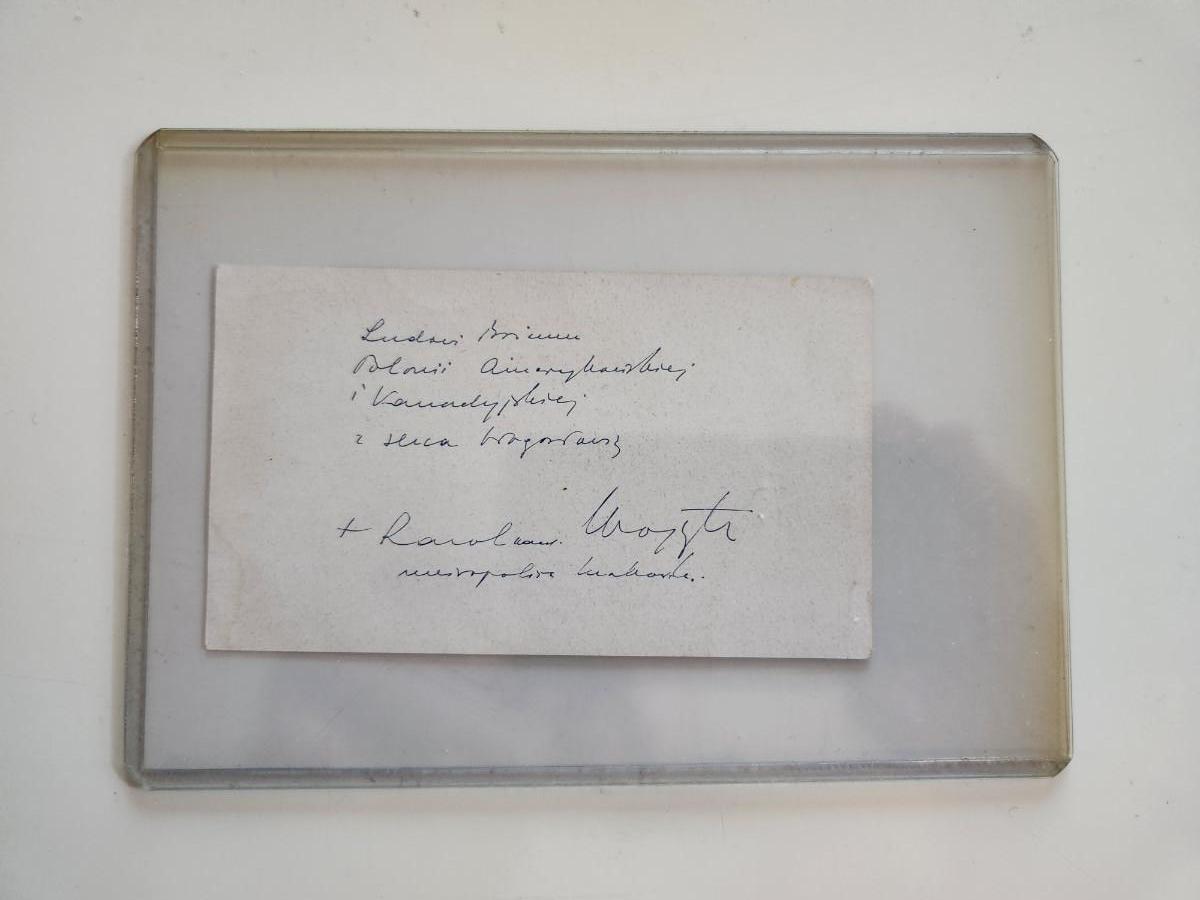 Ludowi Bożemu
Polonii Amerykańskiej
i Kanadyjskiej
z serca błogosławię
+ Karol kard. Wojtyła
metropolita krakowski.